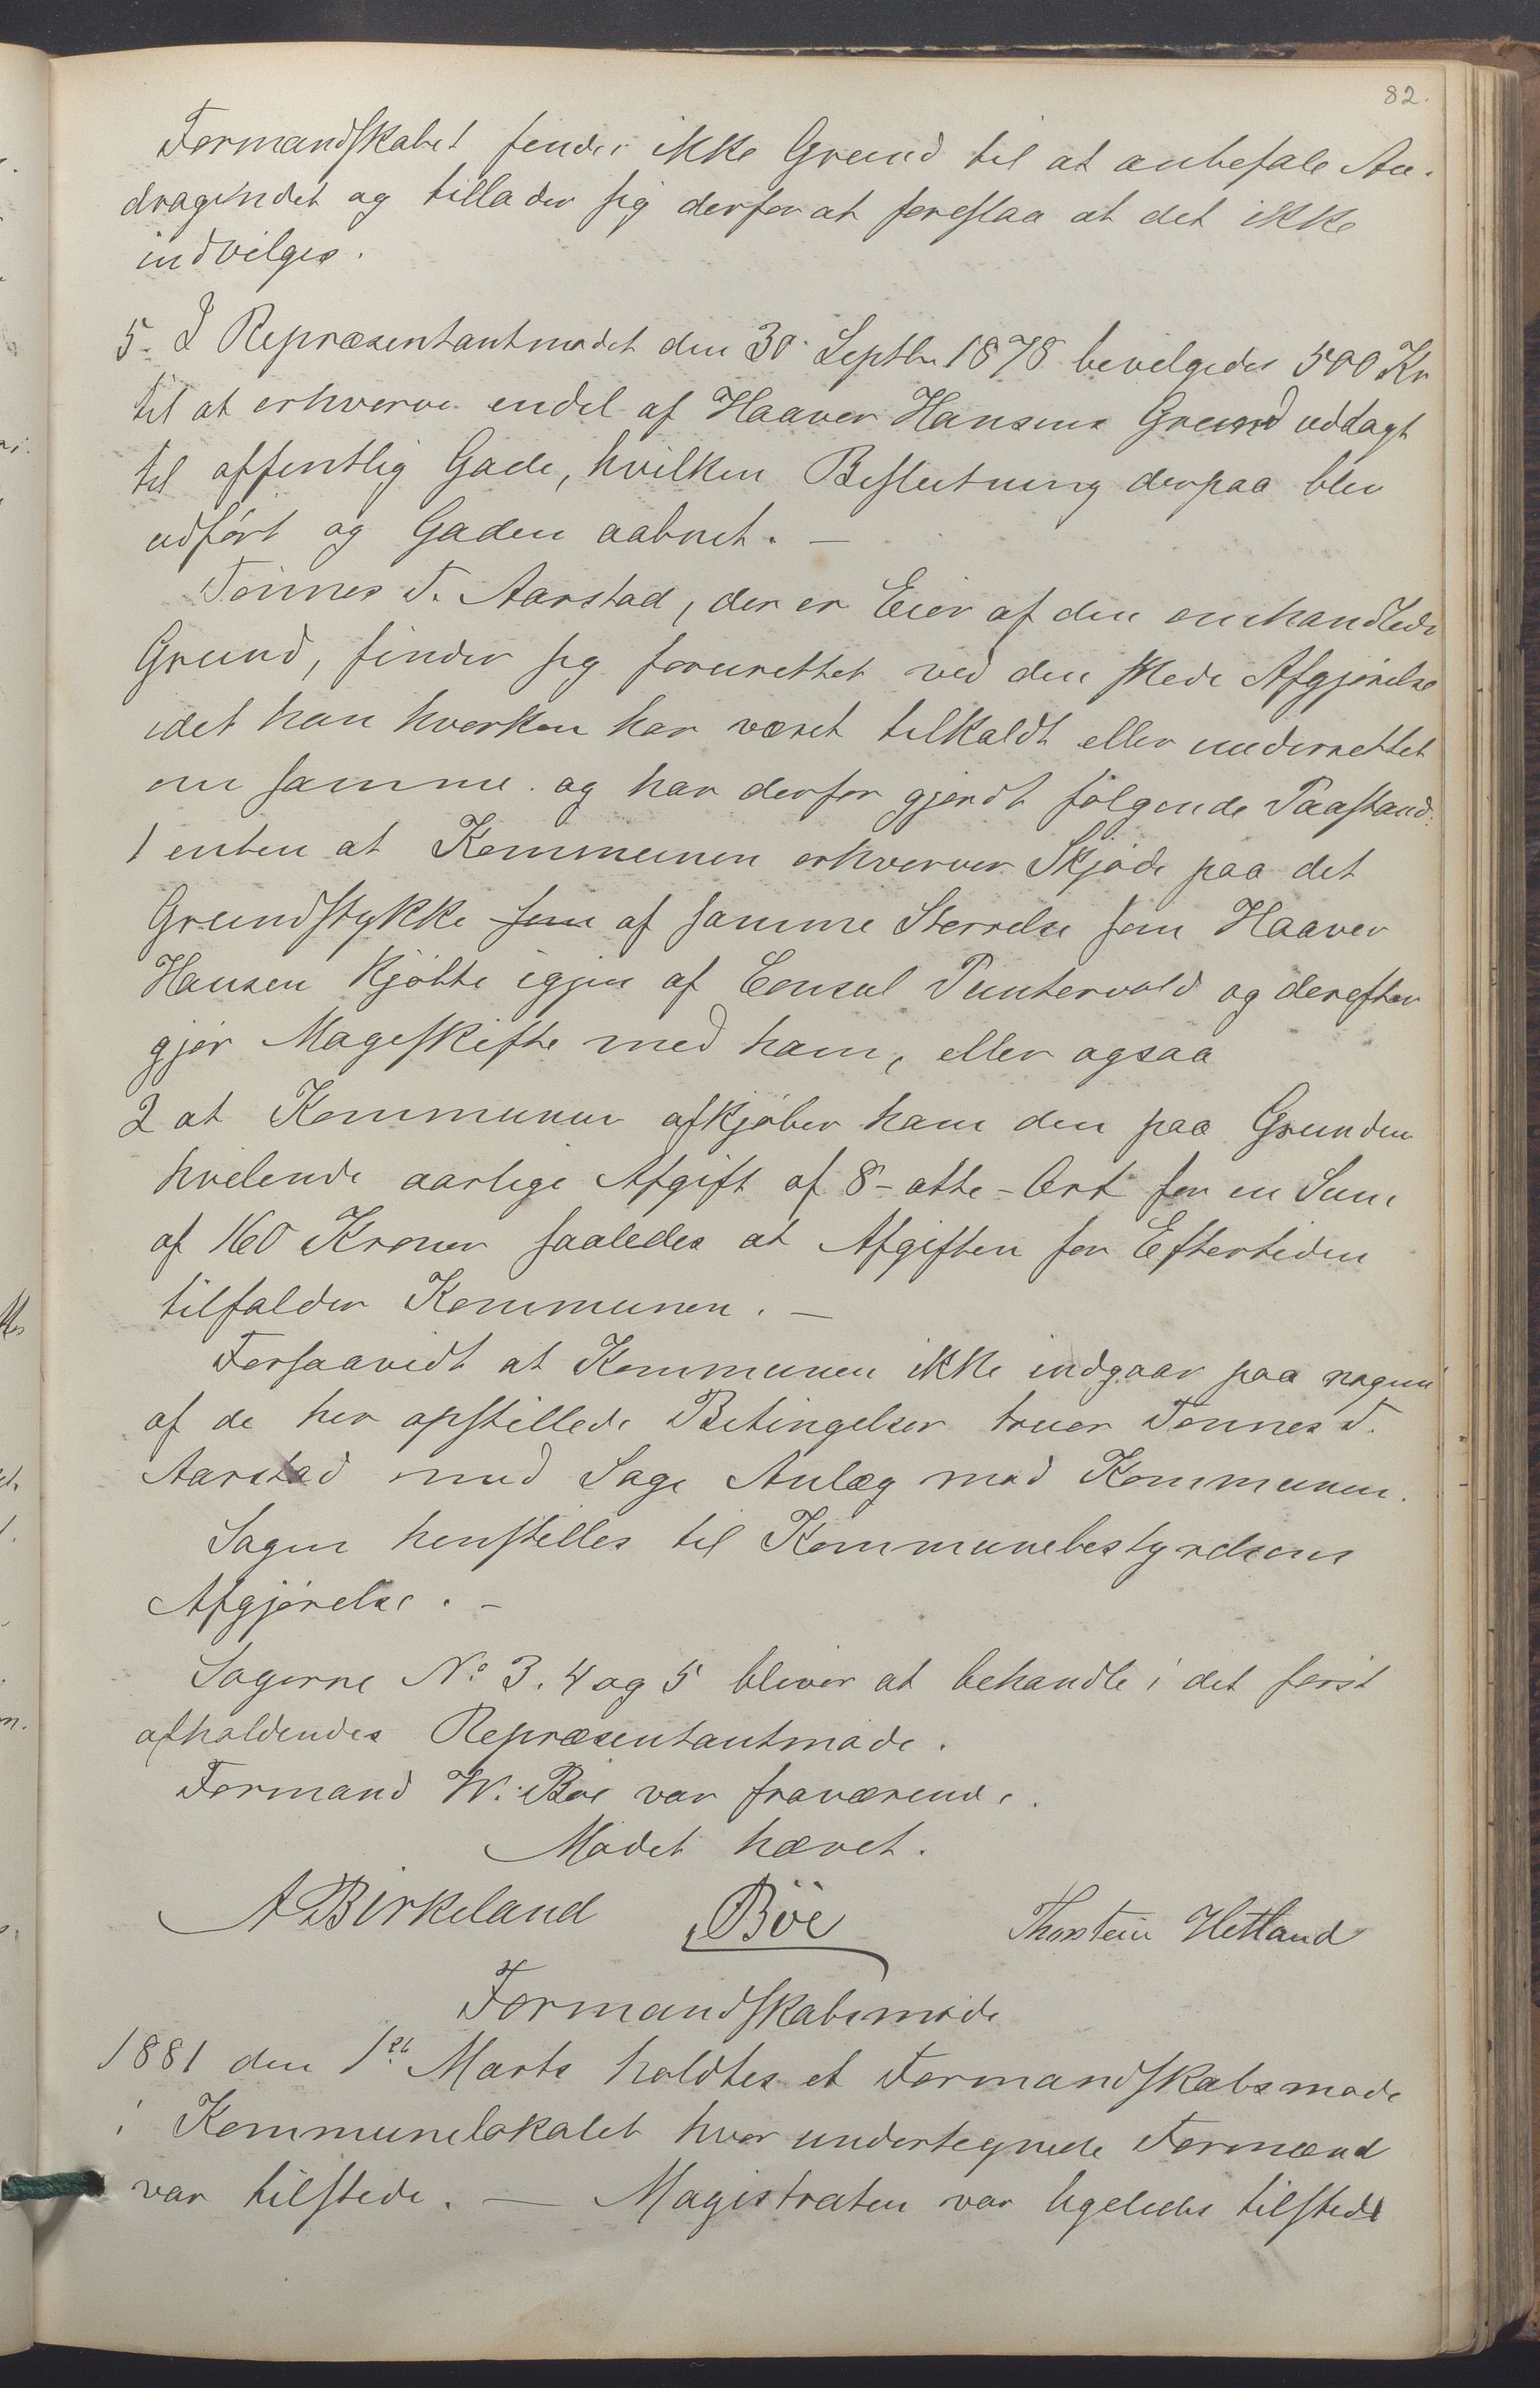 82.
Formandskabet finder ikke Grund til at anbefale An-
dragendet og tillader sig derfor at foreslaa at det ikke
indvilges.
5. I Repræsentantmødet den 30. Septbr 1878 bevilgedes 500 Kr
til at erhverve endel af Haaver Hansens Grund udlagt
til offentlig Gade, hvilken Beslutning derpaa blev
udført og Gaden aabnet. —
Tönnes T. Aarstad, der er Eier af den omhandlede
Grund, finder sig forurettet ved den skede Afgjörelse
idet han hverken har været tilkaldt eller underrettet
om samme. og har derfor gjordt fölgende Paastand:
1 enten at Kommunen erhverver Skjöde paa det
Grundstykke som af samme Störrelse som Haaver
Hansen kjöbte igjen af Consul Puntervold og derefter
gjör Mageskifte med ham, eller ogsaa
2 at Kommunen afkjöber ham den paa Grunden
hvilende aarlige Afgift af 8-otte-Ort for en Sum
af 160 Kroner saaledes at Afgiften for Eftertiden
tilfalder Kommunen. —
Forsaavidt at Kommunen ikke indgaar paa nogen
af de her opstillede Betingelser truer Tönnes T.
Aarstad med Sags Anlæg mod Kommunen.
Sagen henstilles til Kommunebestyrelsens
Afgjörelse. -
Sagerne No 3. 4 og 5 bliver at behandle i det först
afholdendes Repræsentantmöde.
Formand W. Böe var fraværende.
Mödet hævet.
A Birkeland Böe Thorstein Hetland
Formandskabsmöde
1881 den 1st Marts holdtes et Formandskabsmöde
i Kommunelokalet hvor undertegnede Formænd
var tilstede. — Magistraten var ligeledes tilstede